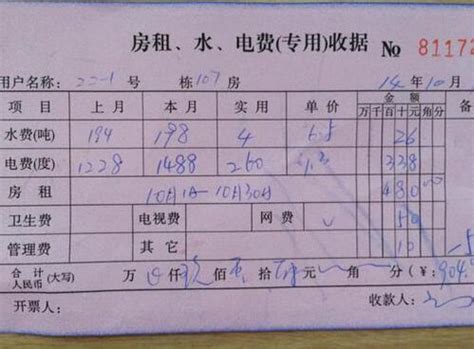 房租、水、电费(专用)收据 № 81172
用户名称: 22-1 号 栋 107 房 14年10月
项目 上月 本月 实用 单价 金额 备
万 千 百 十 元 角 分
水费(吨) 194 198 4 6.5 26
电费(度) 1228 1488 260 1.3 338
房租 10月1日-10月30日 480 00
卫生费 电视费 网费 50
管理费 其它 10
合计 人民币 (大写) 万 仟 玖 佰 拾 肆 元 角 分 (¥: 904
开票人: 收款人: